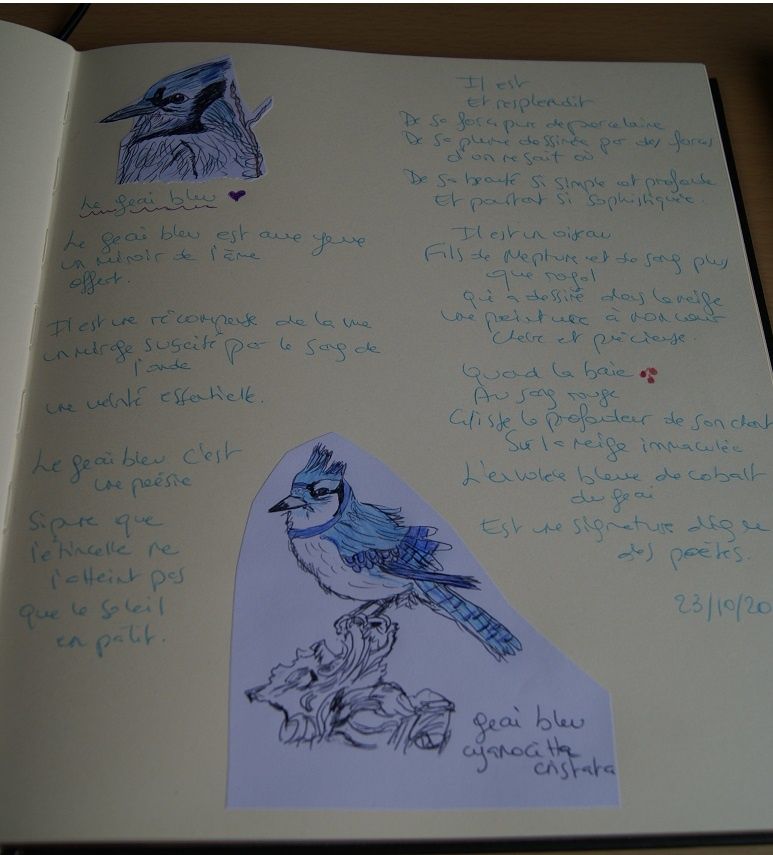 Le geai bleu
Le geai bleu est aux yeux
un miroir de l'âme
offert.
Il est une récompense de la vue
un mirage suscité par le sang de
l'onde
une vérité essentielle.
Le geai bleu c'est
une poésie
Si pure que
l'étincelle ne
l'atteint pas
que le soleil
en pâtit.
Il est
Et resplendit
De sa force pure de porcelaine
De sa plume dessinée par des forces
d'on ne sait où
De sa beauté si simple et profonde
Et pourtant si sophistiquée.
Il est un oiseau
Fils de Neptune et de sang plus
que royal
Qui a dessiné dans la neige
une peinture à mon cœur
chère et précieuse.
Quand la baie
Au sang rouge
Glisse la profondeur de son chant
Sur la neige immaculée
L'envolée bleue de cobalt
du geai
Est une signature digne
des poètes.
23/10/20
geai bleu
cyanocitta
cristata